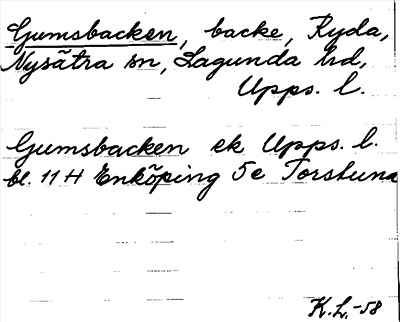 Gumsbacken, backe, Ryda,
Nysätra sn, Lagunda hd,
Upps. l.
Gumsbacken ek Upps. l.
bl. 11 H Enköping 5e Torstuna
K.L. -58